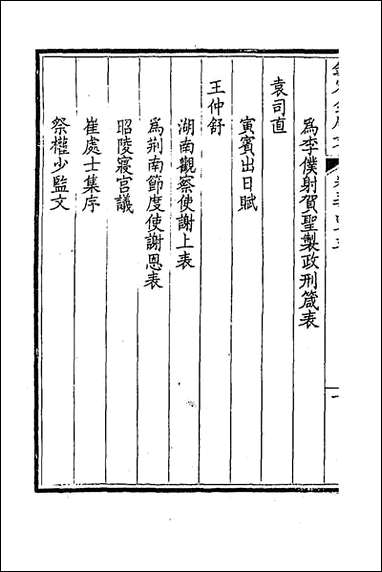 為李僕射賀聖製政刑箴表
袁司直
寅賓出日賦
王仲舒
湖南觀察使謝上表
為荆南節度使謝恩表
昭陵寢宫議
崔處士集序
祭權少監文